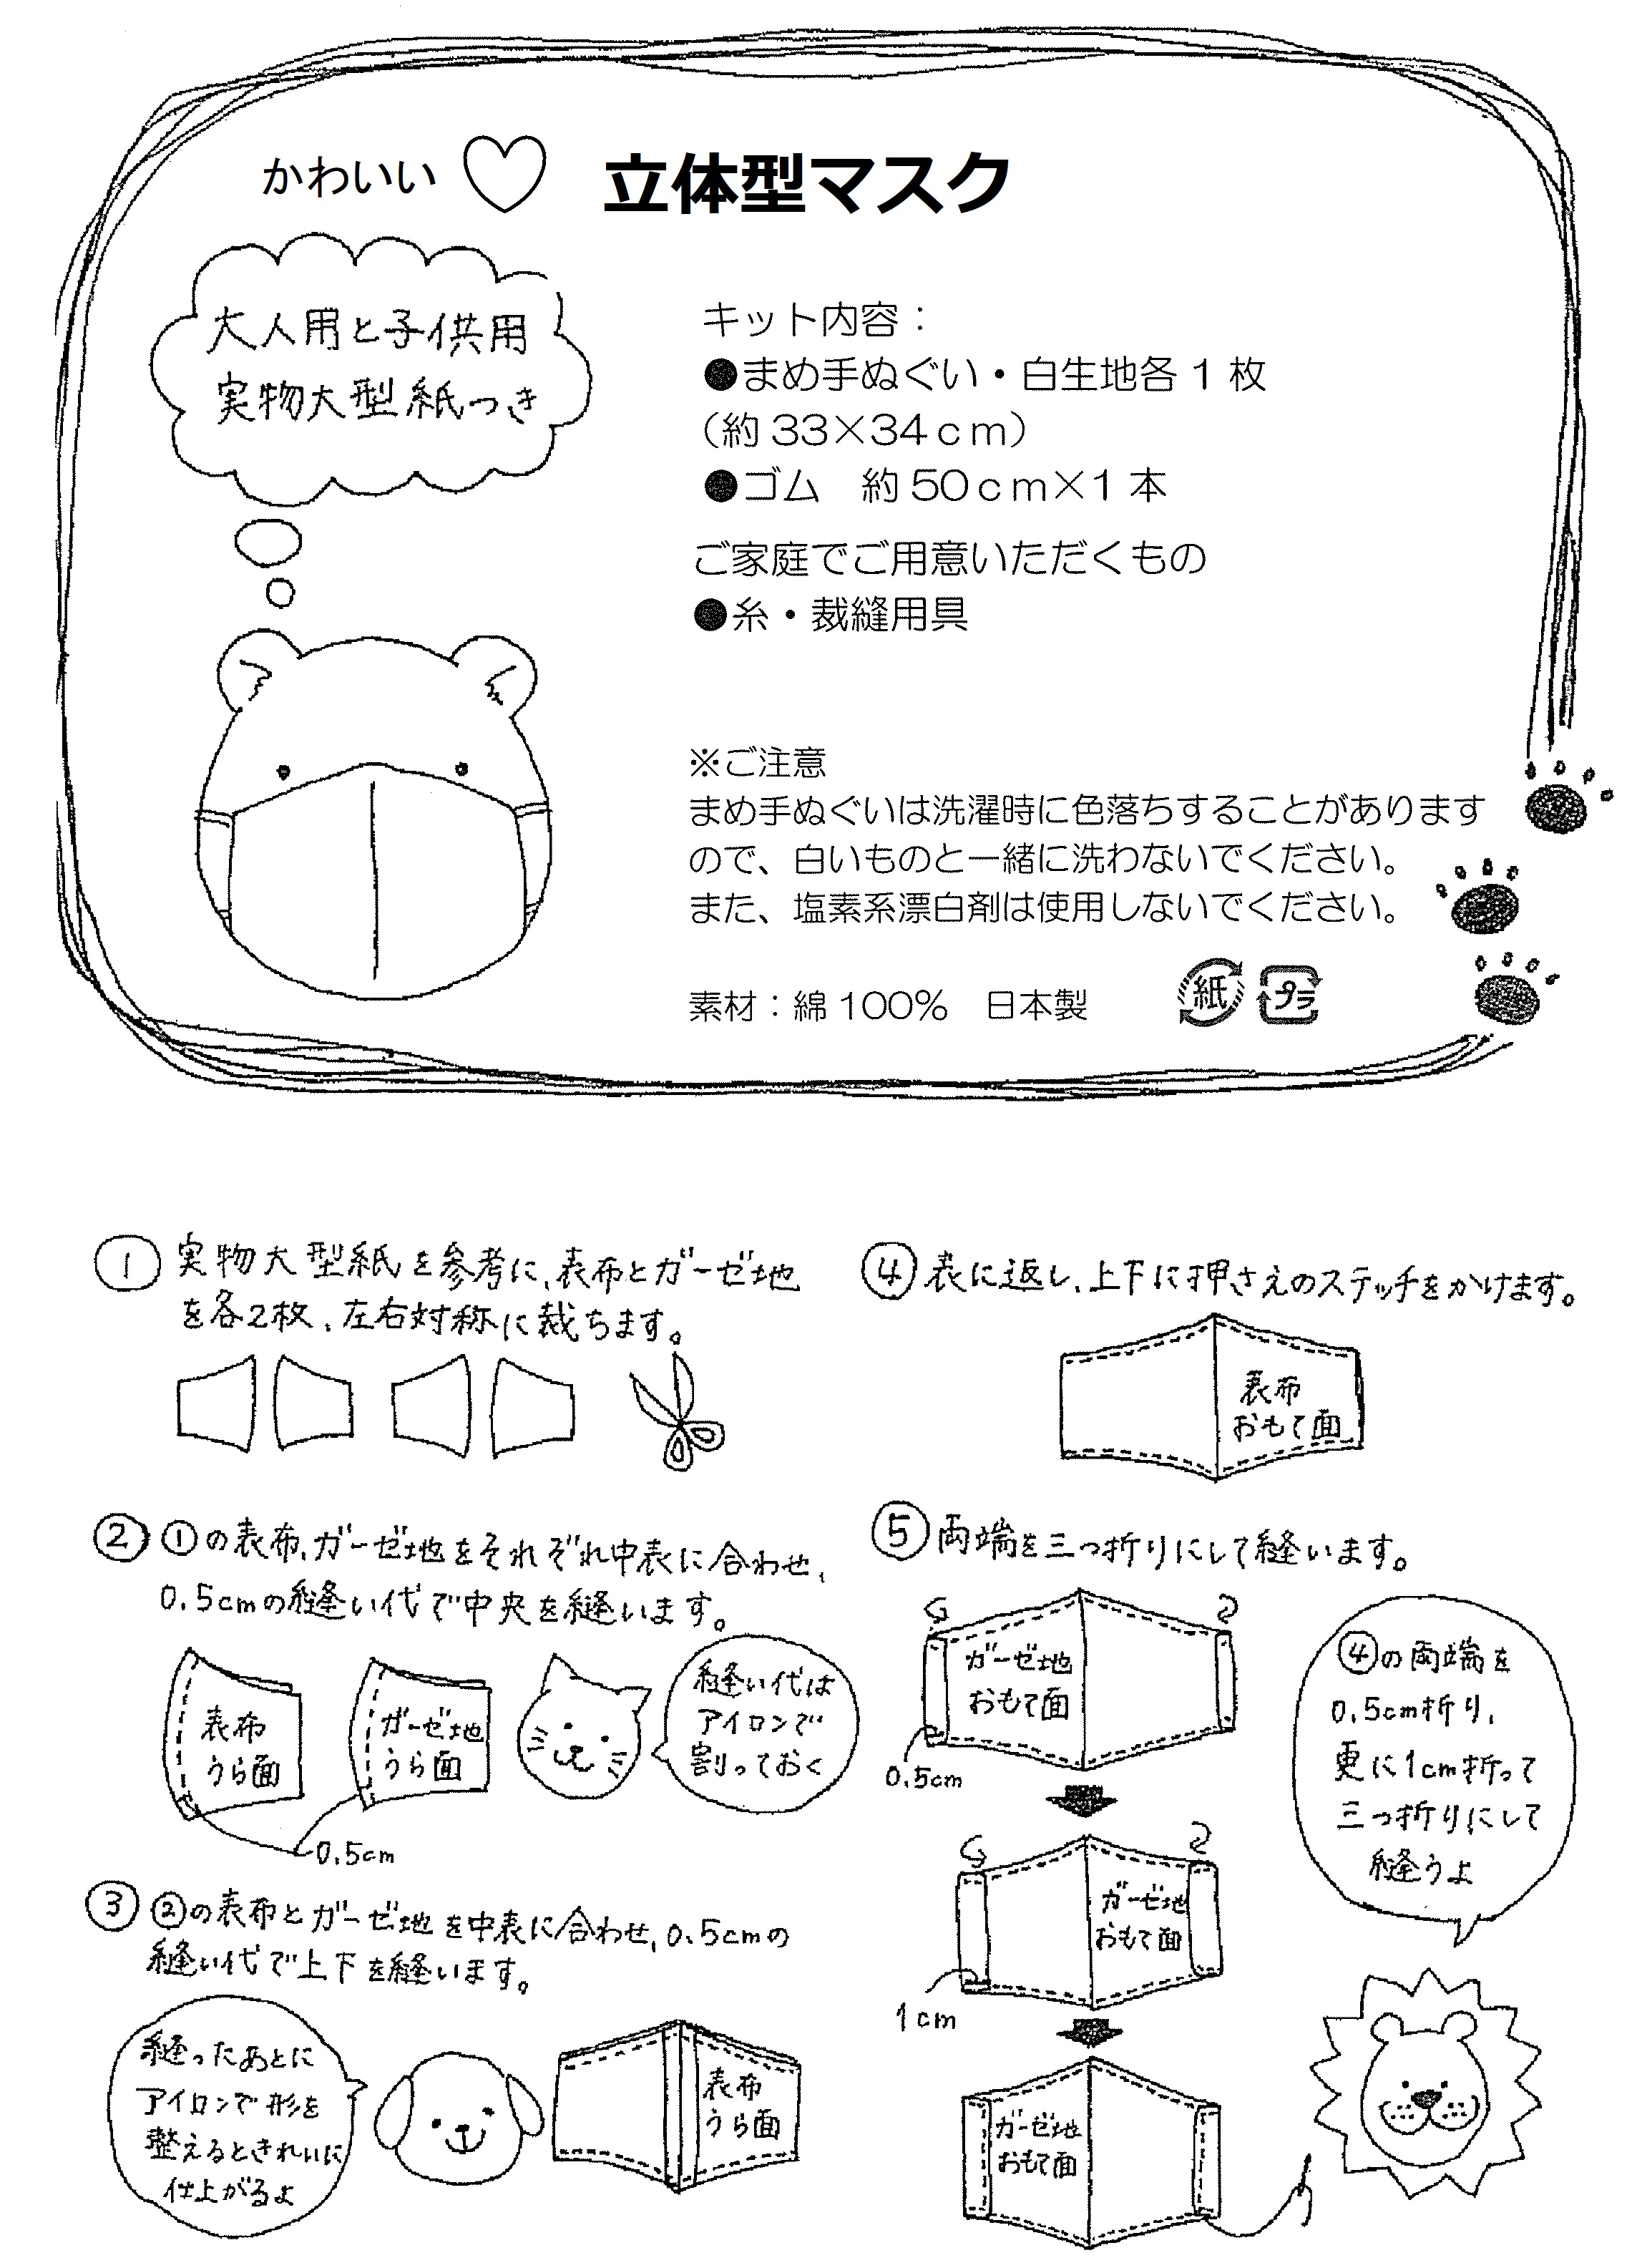 かわいい♡ 立体型マスク
大人用と子供用
実物大型紙つき
キット内容：
●まめ手ぬぐい・白生地各1枚
（約33×34cm）
●ゴム　約50cm×1本
ご家庭でご用意いただくもの
●糸・裁縫用具
※ご注意
まめ手ぬぐいは洗濯時に色落ちすることがあります
ので、白いものと一緒に洗わないでください。
また、塩素系漂白剤は使用しないでください。
素材：綿100%　日本製
紙
プラ
① 実物大型紙を参考に、表布とガーゼ地
を各2枚、左右対称に裁ちます。
② ①の表布、ガーゼ地をそれぞれ中表に合わせ、
0.5cmの縫い代で中央を縫います。
表布
うら面
ガーゼ地
うら面
0.5cm
縫い代は
アイロンで
割っておく
③ ②の表布とガーゼ地を中表に合わせ、0.5cmの
縫い代で上下を縫います。
縫ったあとに
アイロンで形を
整えるときれいに
仕上がるよ
表布
うら面
④ 表に返し、上下に押さえのステッチをかけます。
表布
おもて面
⑤ 両端を三つ折りにして縫います。
ガーゼ地
おもて面
0.5cm
ガーゼ地
おもて面
1cm
ガーゼ地
おもて面
④の両端を
0.5cm折り、
更に1cm折って
三つ折りにして
縫うよ